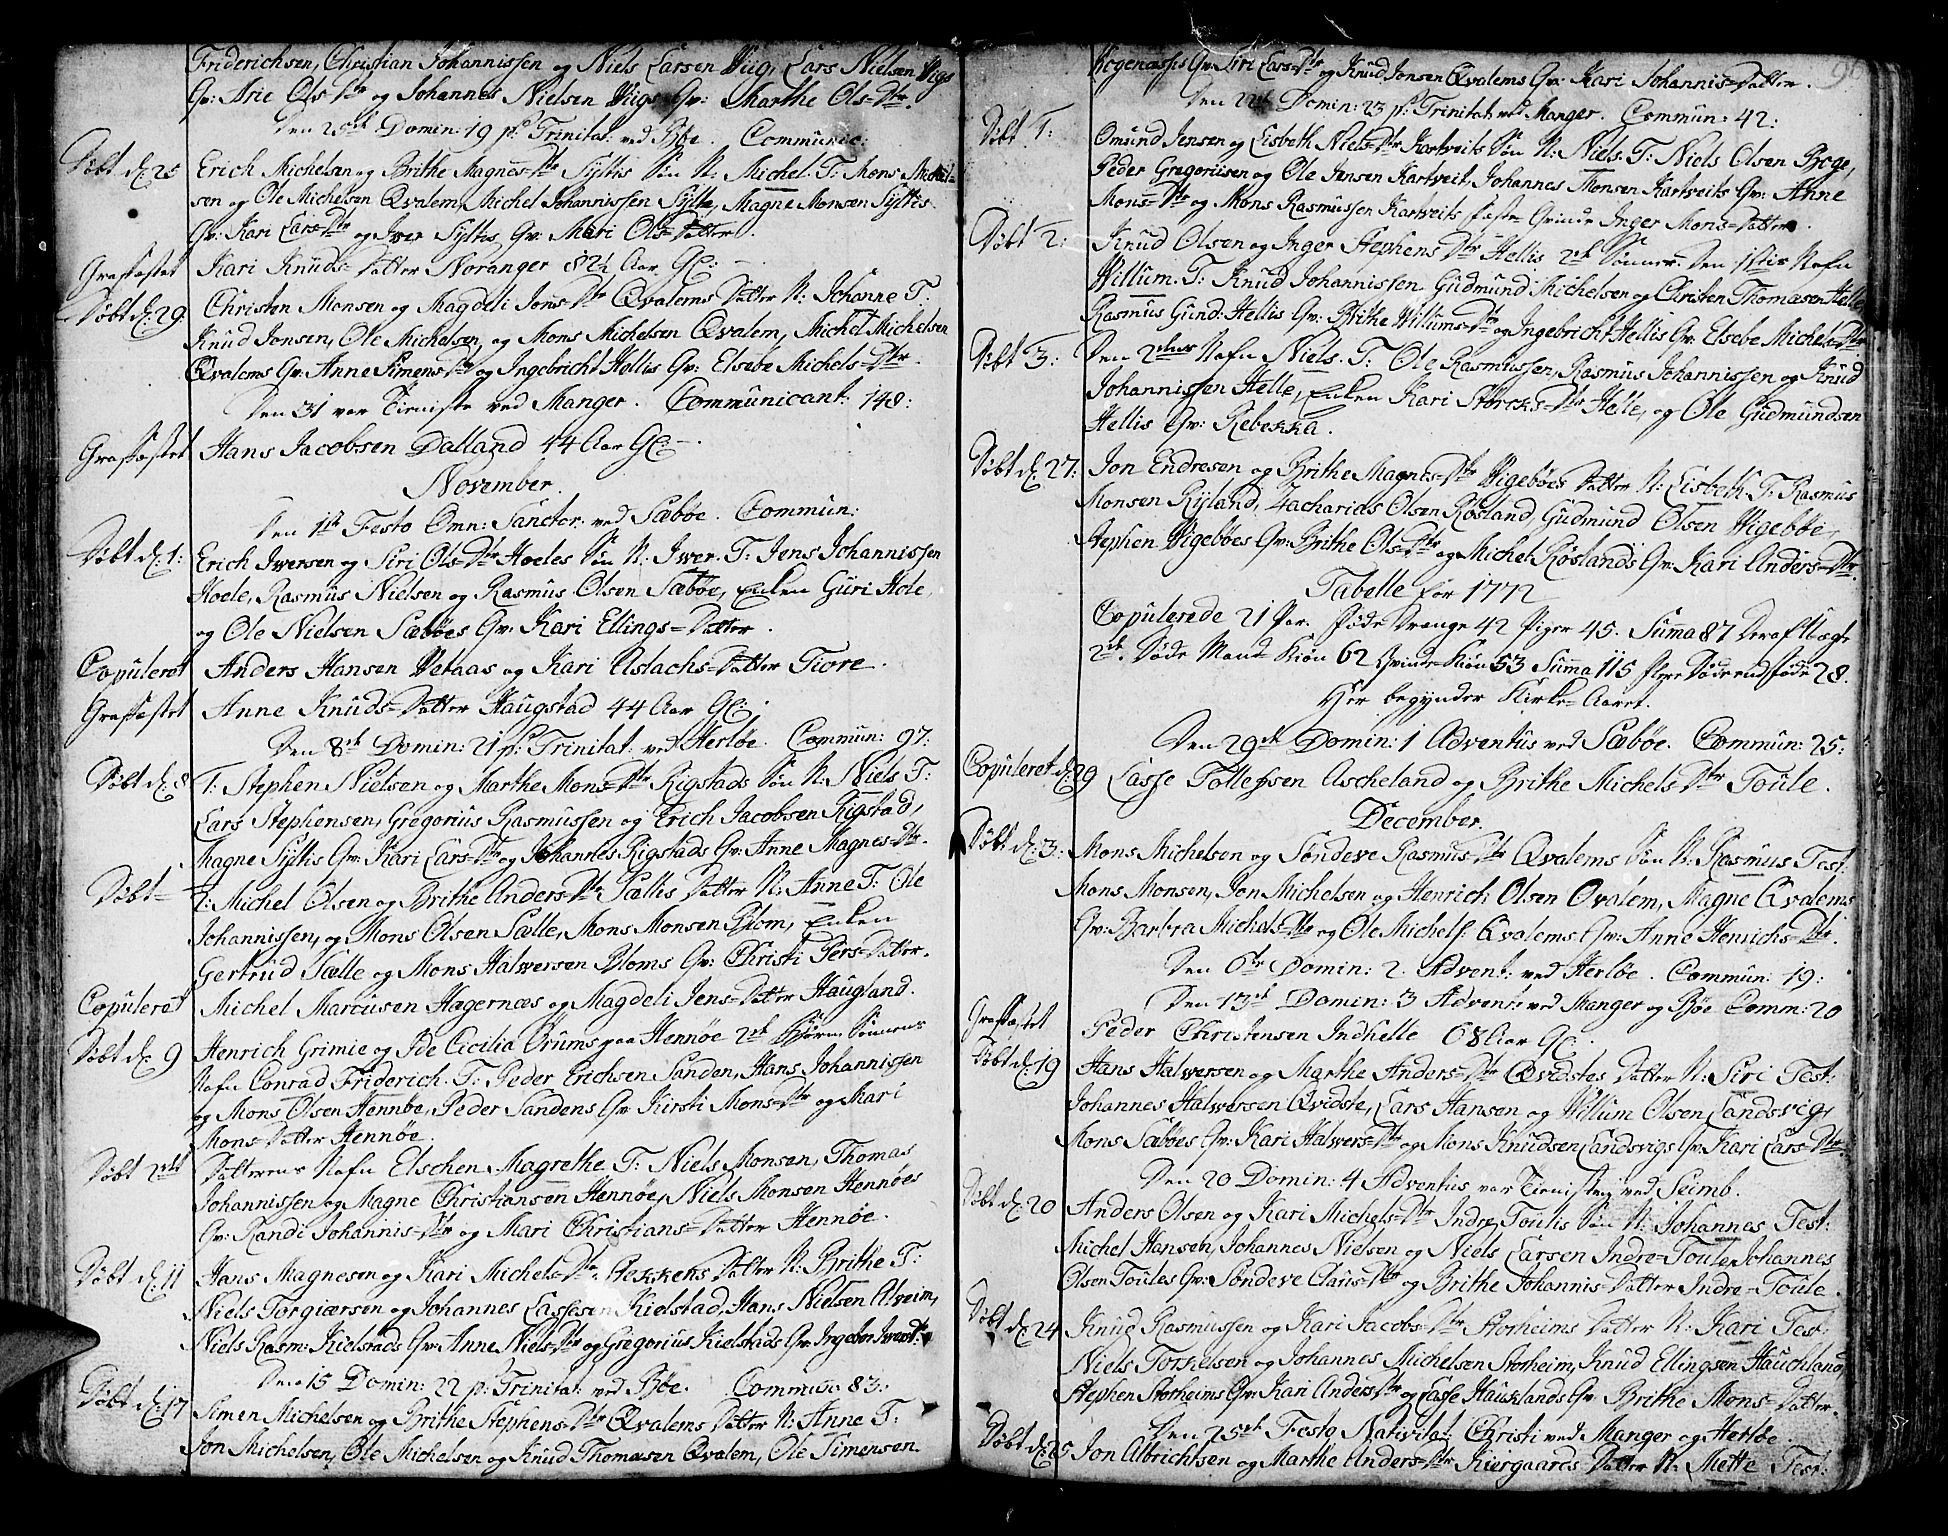 Friderichsen, Christian Johannissen og Niels Larsen Viig, Lars Nielsen Viigs
Gv: Arie Ols=Dtr og Johannes Nielsen Viigs Gv: Marthe Ols=Dtr.
Den 25de Domin: 19 p. Trinitat: ved Bøe. Communic:
Døbt d. 25 Erich Michelsen og Brithe Magnes=Dtr Syltis Søn N: Michel T: Mons Michel-
sen og Ole Michelsen Qvalem, Michel Johannissen Sylte, Magne Monsen Syltis
Gv: Kari Lars=Dtr og Iver Syltis Gv: Mari Ols=Datter.
Grafæstet Kari Knuds=Datter Noranger 82½ Aar Gl:
Døbt d. 29 Christen Monsen og Magdeli Jons=Dtr Qvalems Datter N: Johanne T:
Knud Jonsen, Ole Michelsen, og Mons Michelsen Qvalem, Michel Michelsen
Qvalems Gv: Anne Simens=Dtr og Ingebricht Hellis Gv: Elsebe Michels=Dtr.
Den 31 var Tieniste ved Manger. Communicant: 148:
Grafæstet Hans Jacobsen Dalland 44 Aar Gl:
November.
Den 1te Festo Omn: Sanctor: ved Sæbøe. Commun:
Døbt d. 1: Erich Iversen og Siri Ols=Dtr Hoeles Søn N: Iwer. T: Jens Johannissen
Hoele, Rasmus Nielsen og Rasmus Olsen Sæbøe, Enken Guri Hole,
og Ole Nielsen Sæbøes Gv: Kari Ellings=Datter.
Copuleret Anders Hansen Vetaas og Kari Elstachs=Datter Fiore.
Grafæstet Anne Knuds=Datter Haugstad 44 Aar Gl:
Den 8de Domin: 21 p. Trinitat: ved Herløe. Commun: 97:
Døbt d. 8 T: Stephen Nielsen og Marthe Mons=Dtr Rigstads Søn N: Niels T:
Lars Stephensen, Gregorius Rasmussen og Erich Jacobsen Rigstad,
Magne Syltis Gv: Kari Lars=Dtr og Johannes Rigstads Gv: Anne Magnes=Dtr.
Døbt= Michel Olsen og Brithe Anders=Dtr Sællis Datter N: Anne T: Ole
Johannissen, og Mons Olsen Sælle, Mons Monsen Blom, Enken
Gertrud Sælle og Mons Halversen Bloms Gv: Christi Pers=Datter.
Copuleret Michel Marcusen Hagernæs og Magdeli Jens=Datter Haugland.
Døbt d. 9 Henrich Grimie og Ide Cicilia Örums paa Hennøe 2de Børn Sønnens
Nafn Conrad Friderich. T: Peder Erichsen Sanden, Hans Johannissen
og Mons Olsen Hennøe, Peder Sandens Gv: Kirsti Mons=Dtr og Mari
Mons=Datter Hennøe.
Døbt Datterens Nafn Elschen Magrethe T: Niels Monsen, Thomas
Johannissen og Magne Christiansen Hennøe, Niels Monsen Hennøes
Gv: Randi Johannis=Dtr og Mari Christians=Datter Hennøe.
Døbt d. 11 Hans Magnesen og Kari Michels=Dtr Datter N: Brithe T:
Niels Torgiærsen og Johannes Lassesen Kielstad, Hans Nielsen Alveim,
Niels Rasm: Kielstads Gv: Anne Niels=Dtr og Gregorius Kielstads Gv: Ingebor
Den 15 Domin: 22 p: Trinitat: ved Bøe. Commun: 83:
Døbt d. 17 Simen Michelsen og Brithe Stephens=Dtr Qvalems Datter N: Anne T:
Jon Michelsen, Ole Michelsen og Knud Thomæsen Qvalem, Ole Simensen
Gv: Siri Lars=Dtr og Knud Jensen Qvalems Gv: Kari Johannis=Datter.
Den 22de Domin: 23 p. Trinitat: ved Manger. Commun: 42:
Døbt 1: Omund Jensen og Lisbeth Niels=Dtr Kartveits Søn N: Niels. T: Niels Olsen Boge,
Peder Gregoriisen og Ole Jensen Kartveit, Johannes Monsen Kartveits Gv: Anne
Mons=Dtr og Mons Rasmussen Kartveits fæste Qvinde Inger Mons=Datter.
Døbt 2: Knud Olsen og Inger Stephens Dtr Hellis 2de Sönner. Den 1stes Nafn
Willum. T: Knud Johannissen, Gudmund Michelsen og Christen Thomæsen Helle
Rasmus Gund: Hellis Gv: Brithe Willums=Dtr og Ingebricht Hellis Gv: Elsebe Michels=Dtr
Døbt 3: Den 2dens Nafn Niels. T: Ole Rasmussen, Rasmus Johannissen og Knud
Johannissen Helle, Enken Kari Störcks=Dtr Helle, og Ole Gudmundsen
Hellis Gv: Rebekka.
Døbt d. 27: Jon Endresen og Brithe Magnes=Dtr Vigebøes Datter N: Lisbeth. T: Rasmus
Monsen Ryland, Zacharias Olsen Røsland, Gudmund Olsen Vigebøe,
Stephen Vigebøes Gv: Brithe Ols=Dtr og Michel Røslands Gv: Kari Anders=Dtr.
Tabelle for 1772
Copulerede 21 Par. Føde Drenge 42 Piger 45. Summa 87 Deraf Uægte
2de. Døde Mand-Kiön 62 Qvinde-Kiön 53 Summa 115 flere Døde end føde 28.
Her begynder Kirke=Aaret.
Den 29de Domin: 1 Adventus ved Sæbøe. Commun: 25:
Copuleret d. 29 Lasse Tollefsen Ascheland og Brithe Michels Dtr Toule.
December.
Døbt d. 3: Mons Michelsen og Söndeve Rasmus=Dtr Qvalems Søn N: Rasmus Test:
Mons Monsen, Jon Michelsen og Henrich Olsen Qvalem, Magne Qvalems
Gv: Barbra Michels=Dtr og Ole Michels: Qvalems Gv: Anne Henrichs=Dtr.
Den 6te Domin: 2. Advent: ved Herløe. Commun: 19:
Den 13de Domin: 3 Advent: ved Manger og Bøe Comm: 20
Grafæstet Peder Christensen Indhelle 68 Aar Gl:
Døbt d. 19 Hans Halversen og Marthe Anders=Dtr Qvidstes Datter N: Siri Test:
Johannes Halversen Qvidste, Lars Hansen og Willum Olsen Landsvig,
Mons Sæbøes Gv: Kari Halvers=Dtr og Mons Knudsen Landsvigs Gv: Kari Lars=Dtr
Den 20 Domin: 4 Adventus var Tieniste ved Seimb.
Døbt d. 20 Anders Olsen og Kari Michels=Dtr Indre Toulis Søn N: Johannes Test:
Michel Hansen, Johannes Nielsen og Niels Larsen Indre=Toule, Johannes
Olsen Toules Gv: Söndeve Claus=Dtr og Brithe Johannis=Datter Indre=Toule.
Døbt d. 24 Knud Rasmussen og Kari Jacobs=Dtr Storheims Datter N: Kari Test:
Niels Torkelsen og Johannes Michelsen Storheim, Knud Ellingsen Hauchland,
Stephen Storheims Gv: Kari Anders Dtr og Lasse Hauklands Gv: Brithe Mons=Datter.
Den 25de Festo Nativitat: Christi ved Manger og Herløe.
Døbt d. 25 Jon Albrichtsen og Marthe Anders=Dtr Kiergaards Datter N: Mette Test: